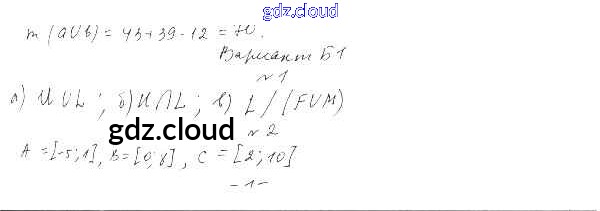 gdz.cloud
m (a∪b) = 43+39-12 = 70.
Вариант Б1
№1
а) И ∪ L ; б) И ∩ L ; в) L / (F∪M)
gdz.cloud
№2
A = [-5;1], B = [0;8], C = [2;10]
-1-